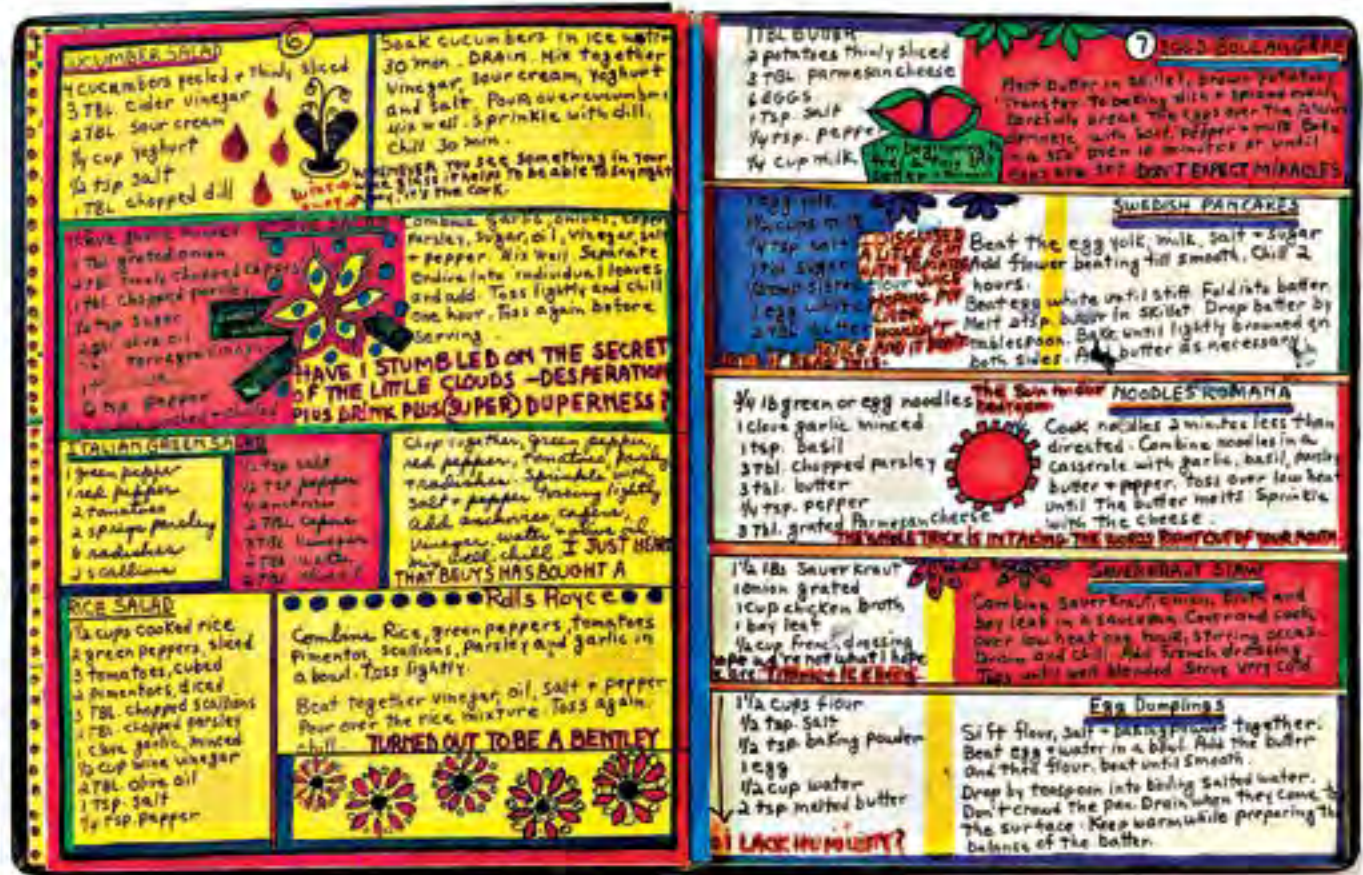 6
CUCUMBER SALAD
4 cucumbers peeled + thinly sliced
3 TBL. Cider vinegar
2 TBL. Sour cream
1/4 cup yoghurt
1/2 tsp salt
1 TBL chopped dill
Soak cucumbers in ice water
30 min. DRAIN. Mix together
vinegar, sour cream, yoghurt
and salt. Pour over cucumbers
Mix well. Sprinkle with dill.
Chill 30 min.
WHENEVER YOU SEE Something in Your
wine glass it helps to be able to say
it's the cork.
1 TBL grated onion
2 TBL finely chopped capers
1 TBL chopped parsley
1/4 tsp sugar
olive oil
pepper
Combine garlic, onions, capers
Parsley, sugar, oil, vinegar, salt
+ pepper. Mix well. Separate
Endive into individual leaves
and add. Toss lightly and chill
one hour. Toss again before
Serving.
HAVE I STUMBLED ON THE SECRET
OF THE LITTLE CLOUDS - DESPERATION
PLUS DRINK PLUS (SUPER) DUPERNESS?
ITALIAN GREEN SALAD
1 green pepper
1 red pepper
2 tomatoes
2 sprigs parsley
6 radishes
2 scallions
1/2 tsp salt
1/2 tsp pepper
anchovies
2 TBL capers
3 TBL vinegar
2 TBL water
2 TBL olive oil
Chop together, green pepper,
red pepper, tomatoes, parsley
+ radishes. Sprinkle with
Salt + pepper tossing lightly
Add anchovies, capers,
vinegar, water + olive oil
mix well, chill. I JUST HEARD
THAT BEUYS HAS BOUGHT A
Rolls Royce
RICE SALAD
1 1/2 cups cooked rice
2 green peppers, sliced
3 tomatoes, cubed
2 pimentos, diced
3 TBL. chopped scallions
1 TBL. chopped parsley
1 clove garlic, minced
1/2 cup wine vinegar
2 TBL olive oil
1 TSP. salt
1/4 tsp. pepper
Combine Rice, green peppers, tomatoes
pimentos, scallions, parsley and garlic in
a bowl. Toss lightly.
Beat together vinegar, oil, salt + pepper
Pour over the rice mixture. Toss again.
chill. TURNED OUT TO BE A BENTLEY
7
1 TBL BUTTER
2 potatoes thinly sliced
3 TBL. parmesan cheese
6 EGGS
1 TSP. Salt
1/4 TSP. pepper
1/4 cup milk
EGGS BOULANGERE
Melt butter in skillet, brown potatoes,
Transfer to baking dish + spread evenly
Carefully break the eggs over the potatoes
Sprinkle with salt, pepper + milk. Bake
in a 350° oven 10 minutes or until
eggs are set. DON'T EXPECT MIRACLES
I'm beginning to
SWEDISH PANCAKES
1 egg yolk
cups milk
1/4 tsp salt
1 tbl sugar
flour
1 egg white
2 TBL butter
I DISCOVERED
A LITTLE GIN
WITH TOMATO
JUICE
HOPING MY
LIVER
WOULDN'T
NOTICE AND IT DIDN'T
Beat the egg yolk, milk, salt + sugar
Add flower beating till smooth, Chill 2
hours.
Beat egg white until stiff. Fold into batter
Melt 2 tsp. butter in skillet. Drop batter by
tablespoon. Bake until lightly browned on
both sides. Add butter as necessary.
3/4 lb green or egg noodles
1 clove garlic minced
1 tsp. Basil
3 Tbl. Chopped parsley
3 tbl. butter
1/4 tsp. pepper
3 Tbl. grated Parmesan cheese
NOODLES ROMANA
Cook noodles 2 minutes less than
directed. Combine noodles in a
casserole with garlic, basil, parsley
butter + pepper. Toss over low heat
until The butter melts. Sprinkle
with the cheese.
THE WHOLE TRICK IS IN TAKING THE WORDS RIGHT OUT OF YOUR MOUTH
1 1/2 lbs Sauerkraut
1 onion grated
1 cup chicken broth
1 bay leaf
1/2 cup french dressing
hope we're not what I hope
we are. TITANIC + ICEBERG.
SAUERKRAUT SLAW
Combine Sauerkraut, onion, broth and
bay leaf in a saucepan. Cover and cook
over low heat one hour, stirring occas.
Drain and chill. Add French dressing
Toss until well blended. Serve very cold
1 1/2 cups flour
1/2 tsp. salt
1/2 tsp. baking powder
1 egg
1/2 cup water
2 tsp melted butter
I LACK HUMILITY?
Egg Dumplings
Sift flour, salt + baking powder together.
Beat egg + water in a bowl. Add the butter
and then flour, beat until smooth.
Drop by teaspoon into boiling salted water.
Don't crowd the pan. Drain when they come to
the surface. Keep warm while preparing the
balance of the batter.